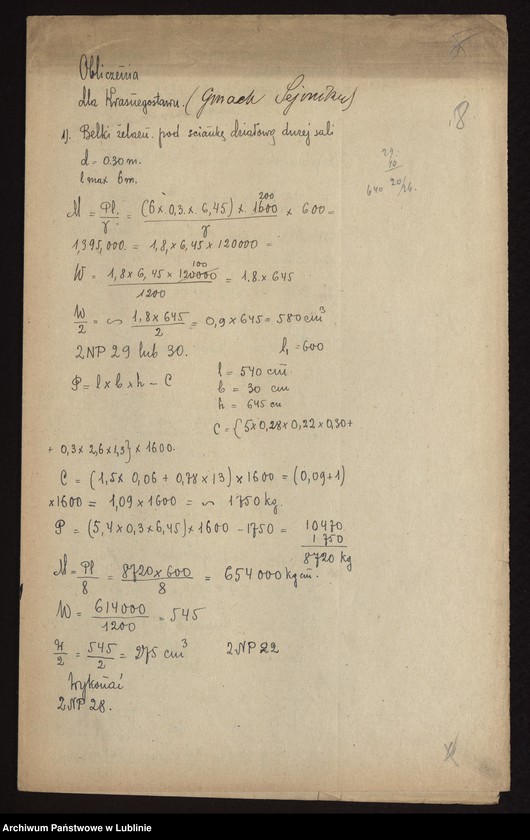 8
Obliczenia
dla Krasnegostawu. (Gmach Sejmiku)
1). Belki żelazn. pod ściankę działową dużej sali
d = 0.30 m.
l max 6 m.
29.
10
640 20/26.
M = Pl./8 = (6 x 0,3 x 6,45) x 1600 200 / 8 x 600 =
1,395,000. = 1,8 x 6,45 x 120000 =
W = 1,8 x 6,45 x 120000 100 / 1200 = 1.8 x 645
W/2 = ∽ 1,8 x 645 / 2 = 0,9 x 645 = 580 cm³
2NP 29 lub 30. l₁ = 600
P = l x b x h – C
l = 540 cm
b = 30 cm
h = 645 cm
C = {5 x 0,28 x 0,22 x 0,30 +
+ 0,3 x 2,6 x 1,3} x 1600.
C = (1,5 x 0,06 + 0,78 x 13) x 1600 = (0,09 + 1)
x 1600 = 1,09 x 1600 = ∽ 1750 kg.
P = (5,4 x 0,3 x 6,45) x 1600 – 1750 =
10470
1750
8720 kg
M = Pl/8 = 8720 x 600 / 8 = 654000 kgcm.
W = 614000 / 1200 = 545
W/2 = 545/2 = 275 cm³ 2NP 22
Wykonać
2NP 28.
Archiwum Państwowe w Lublinie